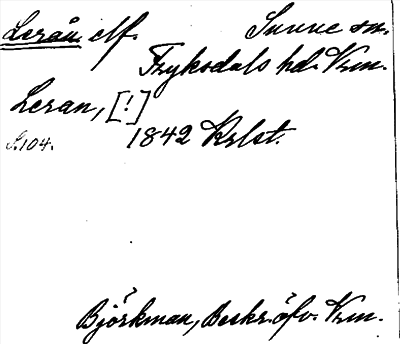 Lerån elf. Sunne sn.
Fryksdals hd. Vrm.
Leran, [!]
S. 104. 1842 Krlst.
Björkman, Beskr. öfv. Vrm.